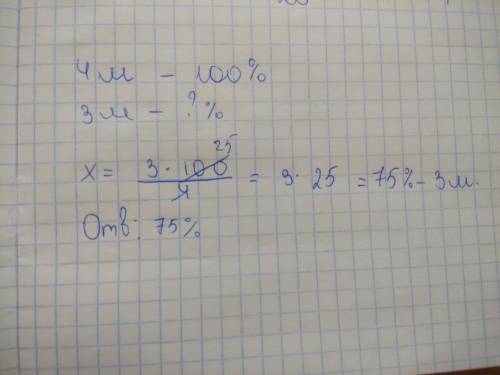 4м - 100%
3м - ?%
x = 3 · 100 25 / 4 = 3 · 25 = 75% - 3м.
Отв: 75%